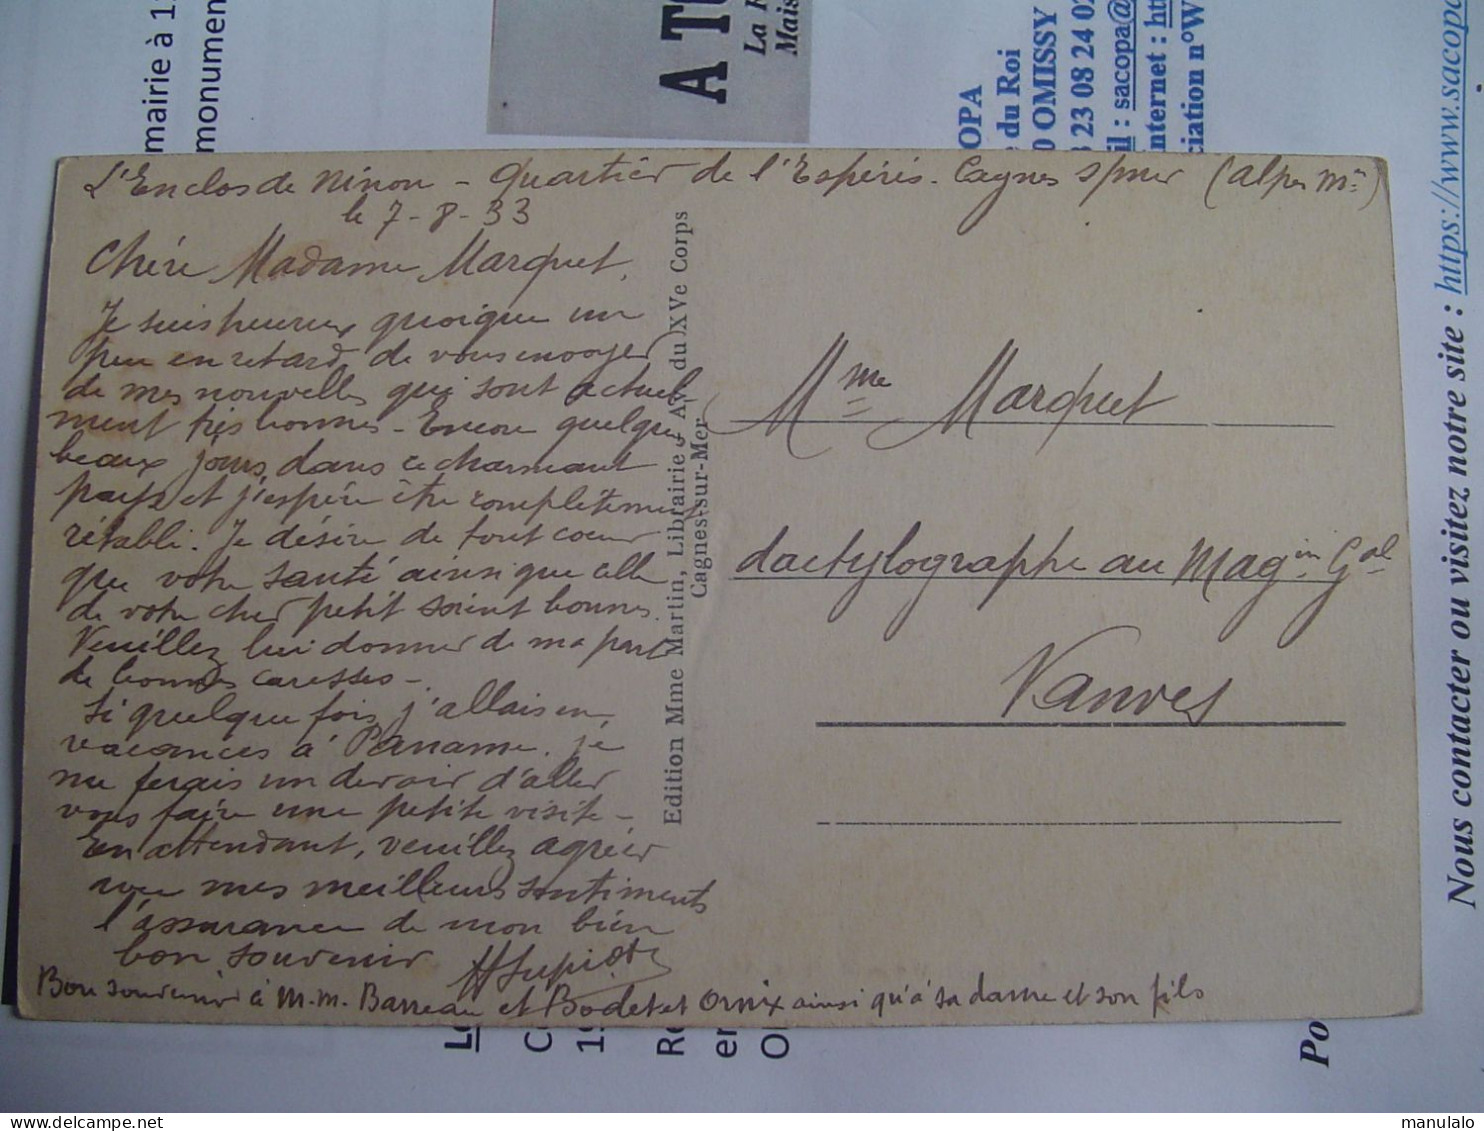 L'Enclos de Ninon - Quartier de l'Espéris. Cagnes s/mer (Alpes Mmes)
le 7-8-33
Chère Madame Marquet,
Je suis heureux quoique un
peu en retard de vous envoyer
de mes nouvelles qui sont actuel-
ment très bonnes - Encore quelques
beaux jours dans ce charmant
pays et j'espère être complètement
rétabli. Je désire de tout coeur
que votre santé ainsi que celle
de votre cher petit soient bonnes.
Veuillez lui donner de ma part
de bonnes caresses -
Si quelque fois j'allais en
vacances à Paname, je
me ferais un devoir d'aller
vous faire une petite visite -
En attendant, veuillez agréer
avec mes meilleurs sentiments
l'assurance de mon bien
bon souvenir
Bon souvenir à M.M. Barreau et Bodet et Ornix ainsi qu'à sa dame et son fils
Edition Mme Martin, Librairie, Av. du XVe Corps
Cagnes-sur-Mer
Mme Marquet
dactylographe au Magin Gal
Vanves
mairie à
monumen
A TO
La
Mais
OPA
du Roi
OMISSY
23 08 24 02
il : sacopa@
nternet : ht
ciation n°W
Nous contacter ou visitez notre site : https://www.sacopa
Po